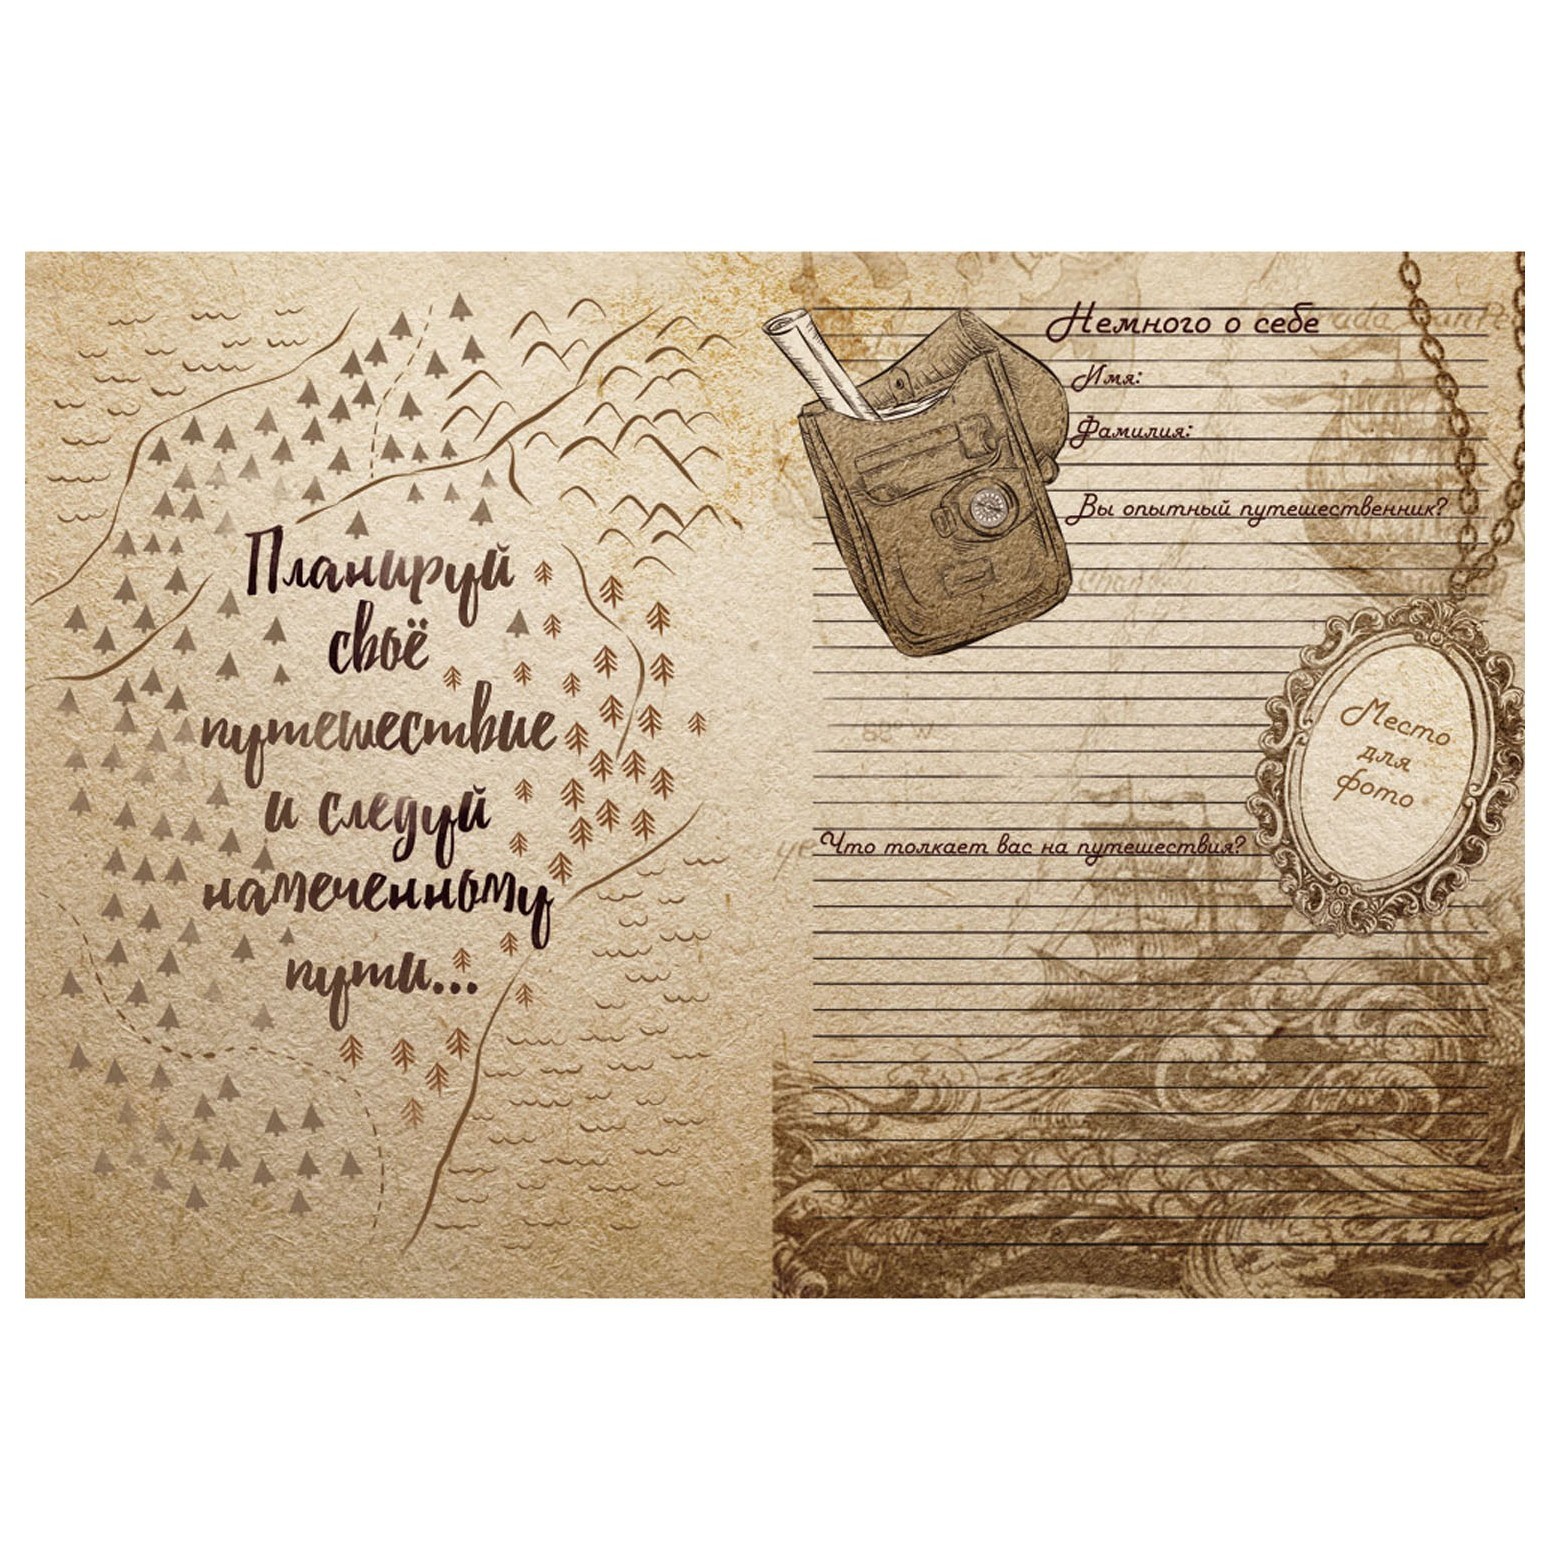 Планируй
своё
путешествие
и следуй
намеченному
пути...
Немного о себе
Имя:
Фамилия:
Вы опытный путешественник?
Что толкает вас на путешествия?
Место
для
фото